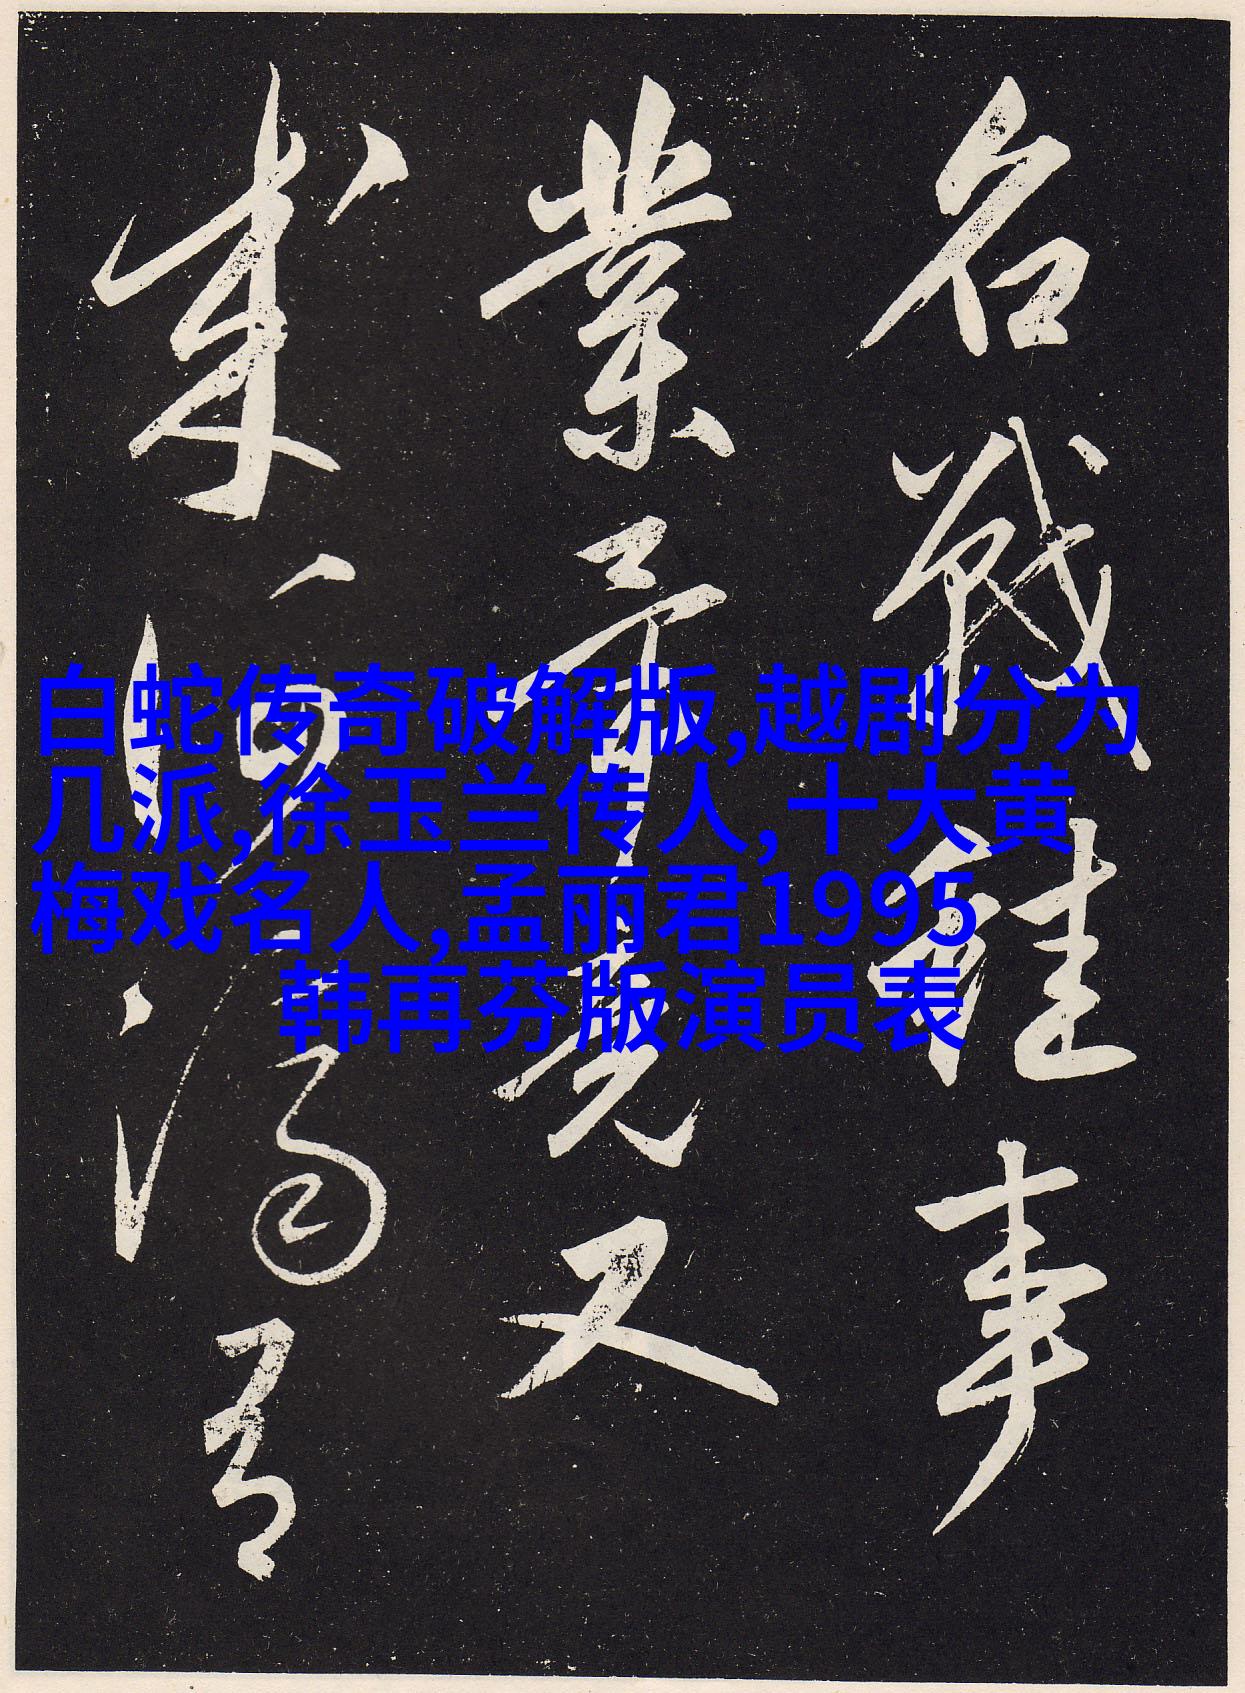 名戰雖事
業 又
白蛇传奇破解版,越剧分为
几派,徐玉兰传人,十大黄
梅戏名人,孟丽君1995
韩再芬版演员表